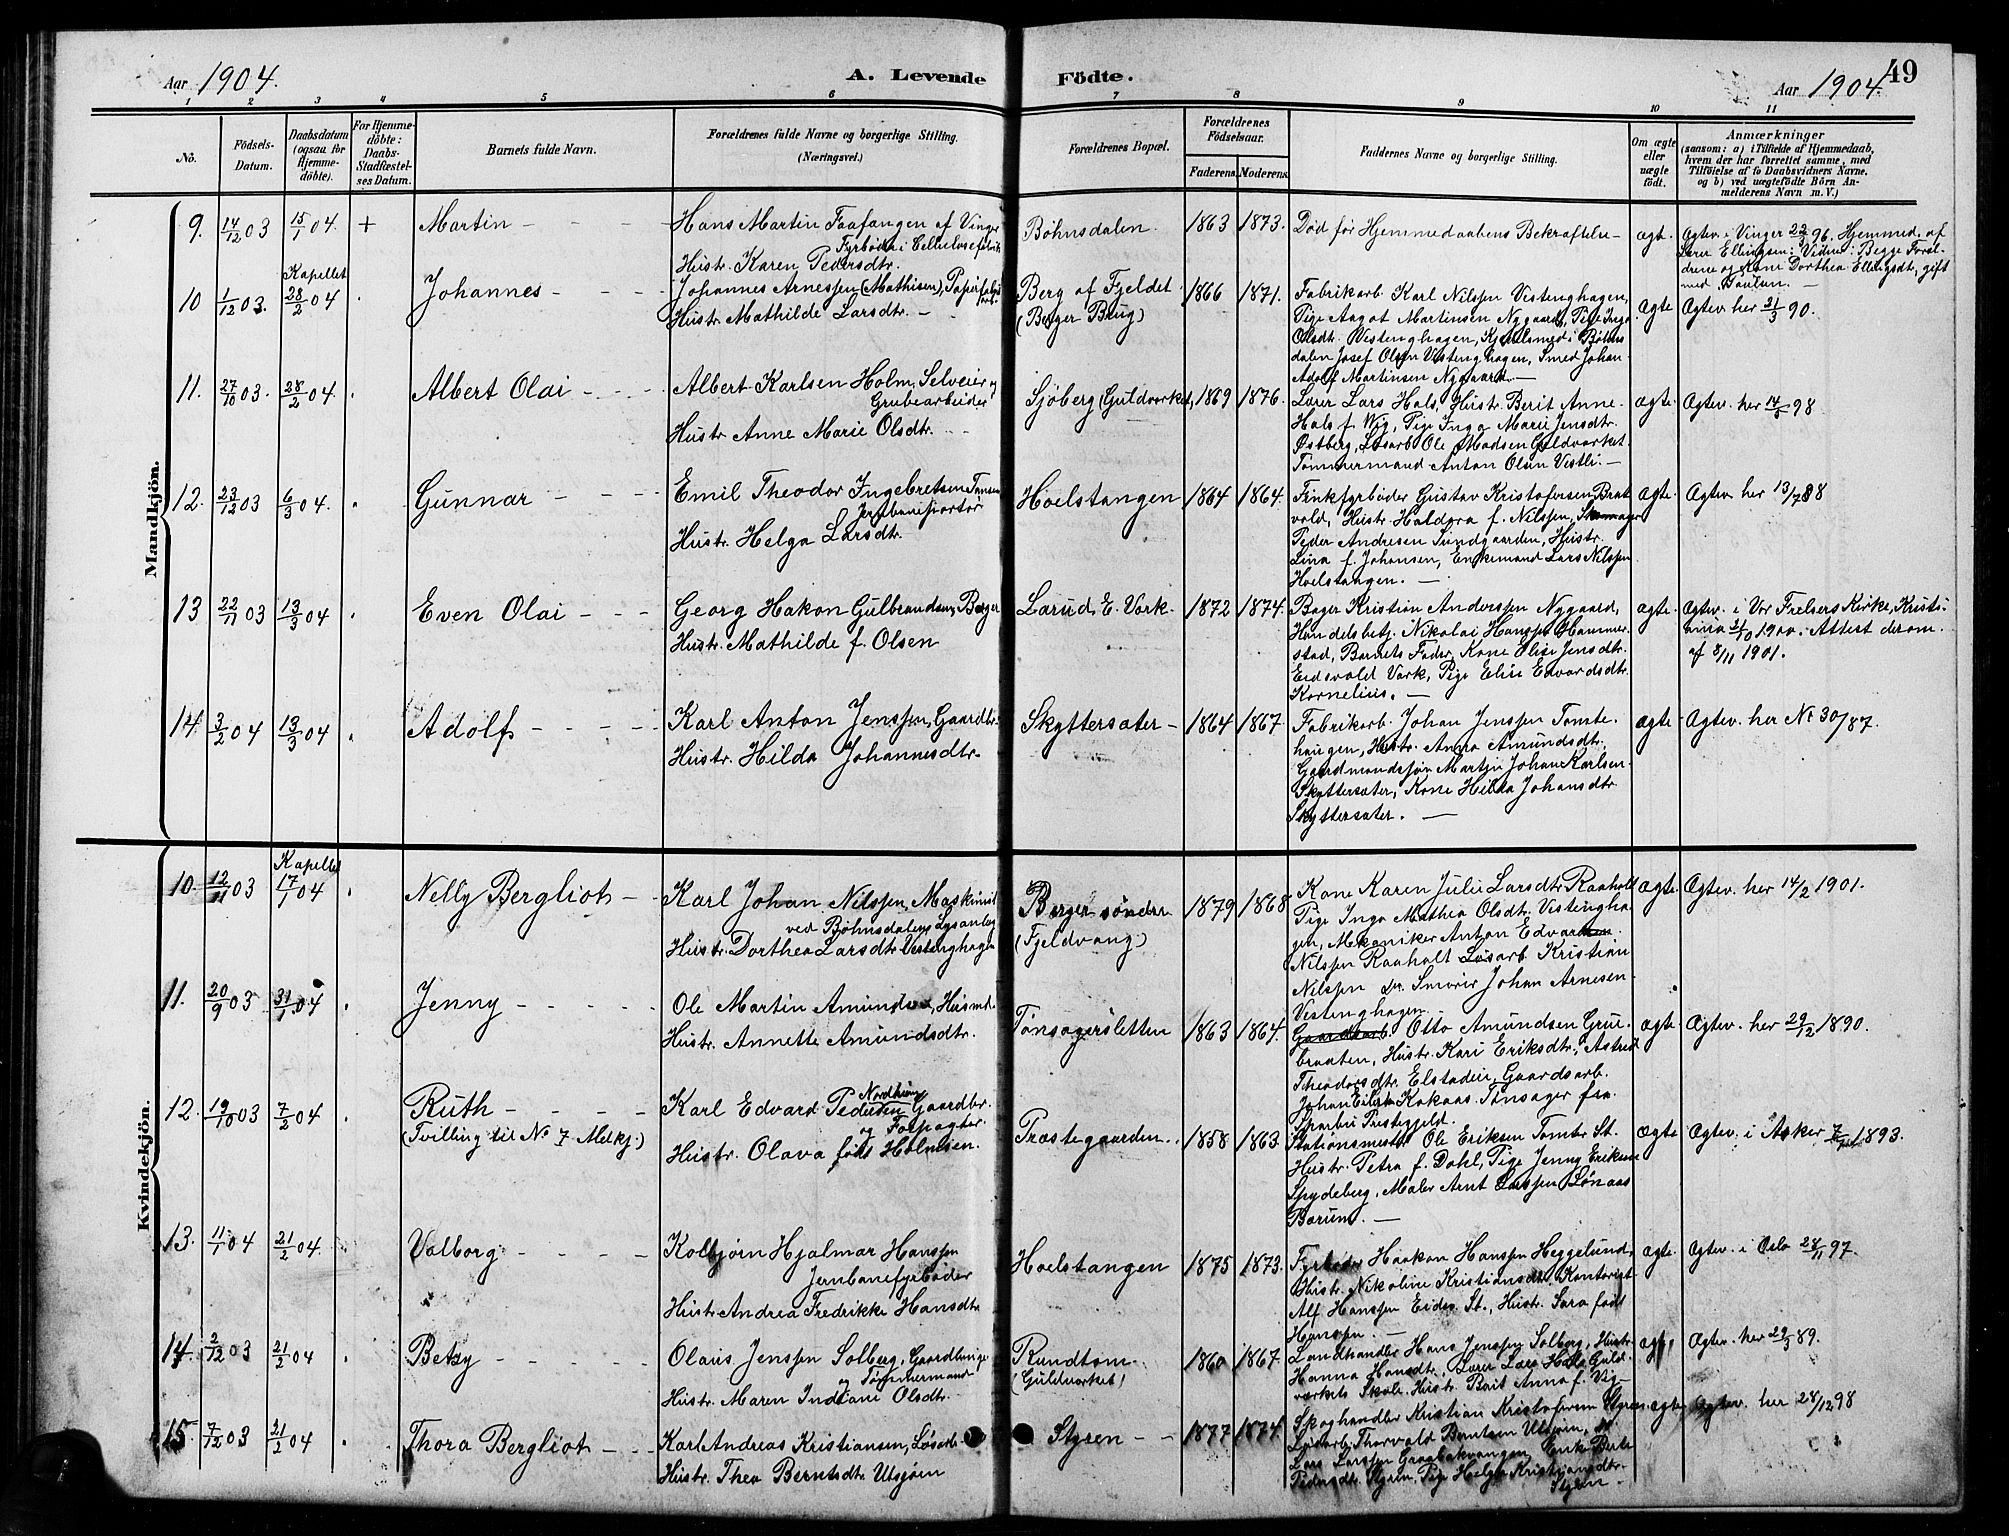 Aar 1904.
A. Levende Födte.
Aar 1904.
49
1 2 3 4 5 6 7 8 9 10 11
No.
Födsels-Datum.
Daabsdatum (ogsaa for Hjemme-döbte).
For Hjemme-döbte: Daabs-Stadfæstel-ses Datum.
Barnets fulde Navn.
Forældrenes fulde Navne og borgerlige Stilling.
(Næringsvei.)
Forældrenes Bopæl.
Forældrenes Födselsaar.
Faderens. Moderens.
Faddernes Navne og borgerlige Stilling.
Om ægte eller uægte födt.
Anmærkninger
(saasom: a) i Tilfælde af Hjemmedaab,
hvem der har forrettet samme, med
Tilföielse af to Daabsvidners Navne,
og b) ved uægtefödte Börn An-
melderens Navn m. V.)
Mandkjön.
9. 14/12 03 15/1 04. + Martin
Hans Martin Faafangen af Vinger
Fyrböder i Cellulosefabrik
Hustr. Karen Pedersdtr.
Böhnsdalen. 1863 1873.
Död før Hjemmedaabens Bekræftelse
ægt.
Ægtev. i Vinger 22/3 96. Hjemmed. af
Lærer Ellingsen: Vidner: Begge Foræl-
drene og Kone Dorthea Ellingsdt, gift
med Paulsen.
Kapellet
10 1/12 03. 28/2 04 Johannes
Johannes Arnessen (Mathisen), Papirfabrik
Hustr. Mathilde Larsdtr.
Berg af Fjeldet
(Berger Brug)
1866 1871.
Fabrikarb. Karl Nilssen Vestenghagen,
Pige Aagot Martinsen Nygaard, Pige Inga
Olsdt. Vestenghagen, Kjedelsmed i Böhns
dalen Josef Olsen Vestenghagen, Smed Johan
Adolf Martinsen Nygaard.
ægte Ægtev. her 21/3 90.
11. 27/10 03. 28/2 04. Albert Olai
Albert Karlsen Holm, Selveier og
Grubearbeider
Hustr. Anne Marie Olsdtr.
Sjöberg (Guldværket) 1869 1876.
Lærer Lars Hals, Hustr. Berit Anne
Hals f. Wig, Pige Inga Marie Jensdtr.
Østberg, Løsarb. Ole Madsen Guldværket
Tømmermand Anton Olsen Vestli.
ægte Ægtev. her 14/5 98
12. 23/12 03 6/3 04. Gunnar
Emil Theodor Ingebretsen Tønsen
Jernbaneportør
Hustr. Helga Larsdtr.
Hoelstangen 1864 1864.
Finkfyrbøder Gustav Kristofersen Brat
vold, Hustr. Haldora f. Nilssen, Skomager
Peder Andresen Sundgaarden, Hustr.
Lina f. Johansen, Enkemand Lars Nilssen
Hoelstangen.
ægte. Ægtev. her 13/7 88
13 22/11 03 13/3 04 Even Olai
Georg Hakon Gulbrandsen, Bager
Hustr. Mathilde f. Olsen
Larud E. Værk. 1872 1874.
Bager Kristian Anderssen Nygaard,
Handelsbetj. Nikolai Hanssen Hammer
stad, Barnets Fader, Kone Elise Jensdtr.
Eidsvold Værk, Pige Elise Edvardsdtr.
Kornelius.
ægte
Ægtev. i Vor Frelsers Kirke, Kristi-
ania 21/10 1900. Attest derom
af 8/11 1901.
14. 3/2 04 13/3 04 Adolf
Karl Anton Jenssen, Gaardbr.
Hustr. Hilda Johannesdtr.
Skyttersæter 1864 1867.
Fabrikarb. Johan Jenssen Tomte
haugen, Hustr. Anna Amundsdtr.
Gaardmandssøn Martin Johan Karlsen
Skyttersæter, Kone Hilda Johansdtr.
Skyttersæter.
ægte Ægtev. her No 30/87.
Kvindekjön.
Kapellet
10. 12/11 03 17/1 04 Nelly Bergliot
Karl Johan Nilssen, Maskinist
ved Böhnsdalens Lysanlæg
Hustr. Dorthea Larsdtr Vestenghagen
Berger søndre
(Fjeldvang)
1879 1868.
Kone Karen Julie Larsdtr Raaholt
Pige Inga Mathea Olsdt. Vestengha
gen, Mekaniker Anton Edvardsen
Nilssen Raaholt Løsarb. Kristian
Nilssen Ds. Smører Johan Arnesen
Vestenghagen
ægte Ægtev. her 14/2 1901.
11. 20/9 03 31/1 04 Jenny
Ole Martin Amundsen, Husmd.
Hustr. Annette Amundsdtr.
Tønsagersletten 1863 1864.
Gaardbarb. Otto Amundsen Grue
braaten, Hustr. Kari Eriksdtr, Astrid
Theodorsdtr. Elstadeie, Gaardsarb.
Johan Eilert Kokaas Tønsager fra
Sparbu Præstegjeld.
ægte Ægtev. her 29/2 1890.
12. 19/10 03 7/2 04 Ruth
(Tvilling til No 7 Mdkj.)
Nordhoug
Karl Edvard Pedersen Gaardbr.
og Forpagter
Hustr. Olava født Holmsen
Præstegaarden 1858 1863
Stationsmester Ole Eriksen Tomter St.
Hustr. Petra f. Dahl, Pige Jenny Eriksen
Spydeberg, Maler Arnt Larssen Lønaas
Bærum.
ægte Ægtev. i Asker 1893.
13. 11/1 04 21/2 04. Valborg
Kolbjørn Hjalmar Hanssen
Jernbanefyrbøder
Hustr Andrea Fredrikke Hansdtr
Hoelstangen 1875 1873.
Fyrbøder Haakon Hanssen Heggelund,
Hustr. Nikoline Kristiansdt. Kontorist
Alf Hanssen Eidsv. St., Hustr. Sara født
Hanssen.
ægte. Ægtev. i Oslo 28/11 97.
14. 2/12 03 21/2 04 Betsy
Olaus Jenssen Solberg, Gaardbruger
og Tømmermand
Hustr. Maren Indiane Olsdtr.
Rundtom
(Guldværket)
1860 1867.
Landhandler Hans Jenssen Solberg, Hustr.
Hanna Hansdtr, Lærer Lars Hals Guld
værkets Skole. Hustr. Brit Anna f. Vig
ægte Ægtev. her 29/3 89.
15. 7/12 03 21/2 04 Thora Bergliot
Karl Andreas Kristiansen, Løsarb.
Hustr. Thea Berntsdtr Utsjøen
Styren 1877 1874.
Skoghandler Kristian Kristofersen Styren
Løsarb. Thorvald Berntsen Utsjøen,
Lars Larssen Graabækvangen, Enke Berte
Pedersdtr. Styren, Pige Helga Kristiansdtr.
Styren
ægte Ægtev. her 28/12 98